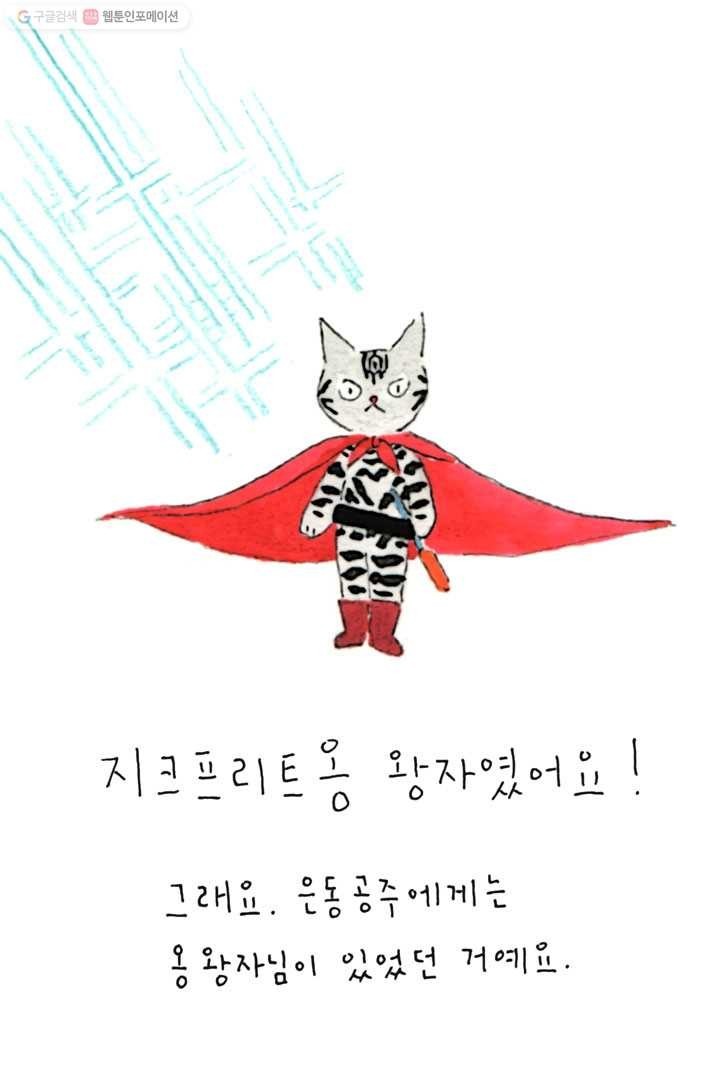 구글검색 웹툰인포메이션
지크프리트옹 왕자였어요!
그래요. 은동공주에게는
옹왕자님이 있었던 거예요.